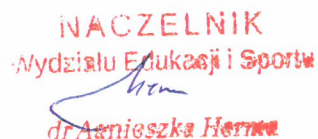 NACZELNIK
Wydziału Edukacji i Sportu
dr Agnieszka